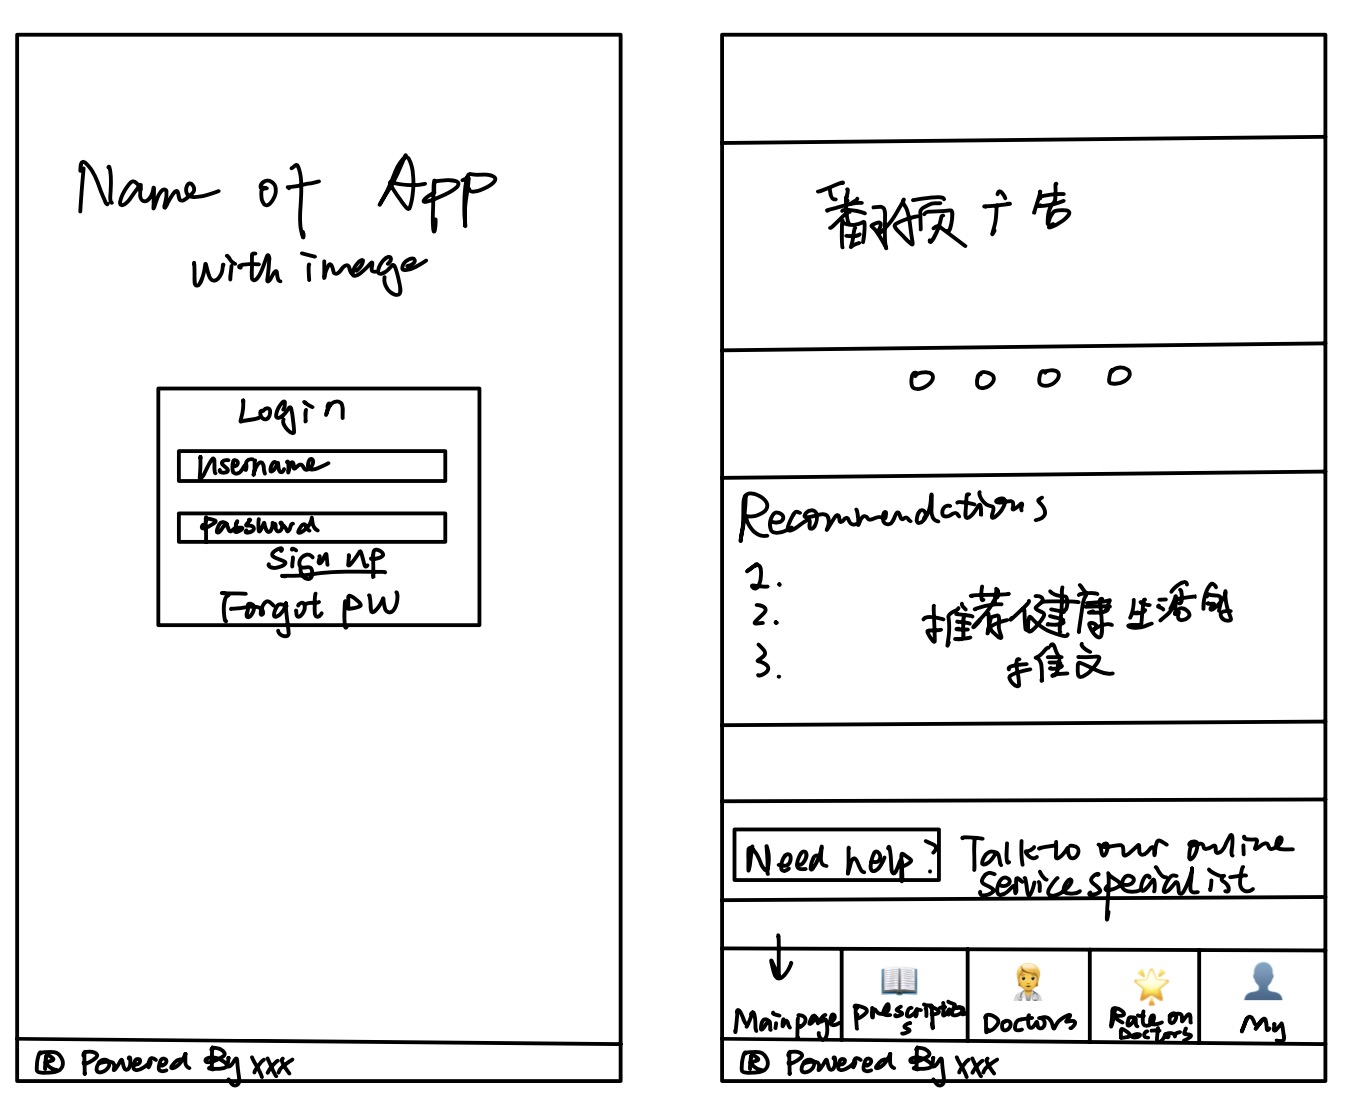 Name of App
with image
Login
Username
Password
Sign up
Forgot PW
® Powered By xxx
广告
Recommendations
1.
2.
3.
推荐健康生活的
推文
Need help?
Talk to our online
service specialist
Main page
Prescriptions
Doctors
Rate on
Doctors
My
® Powered By xxx